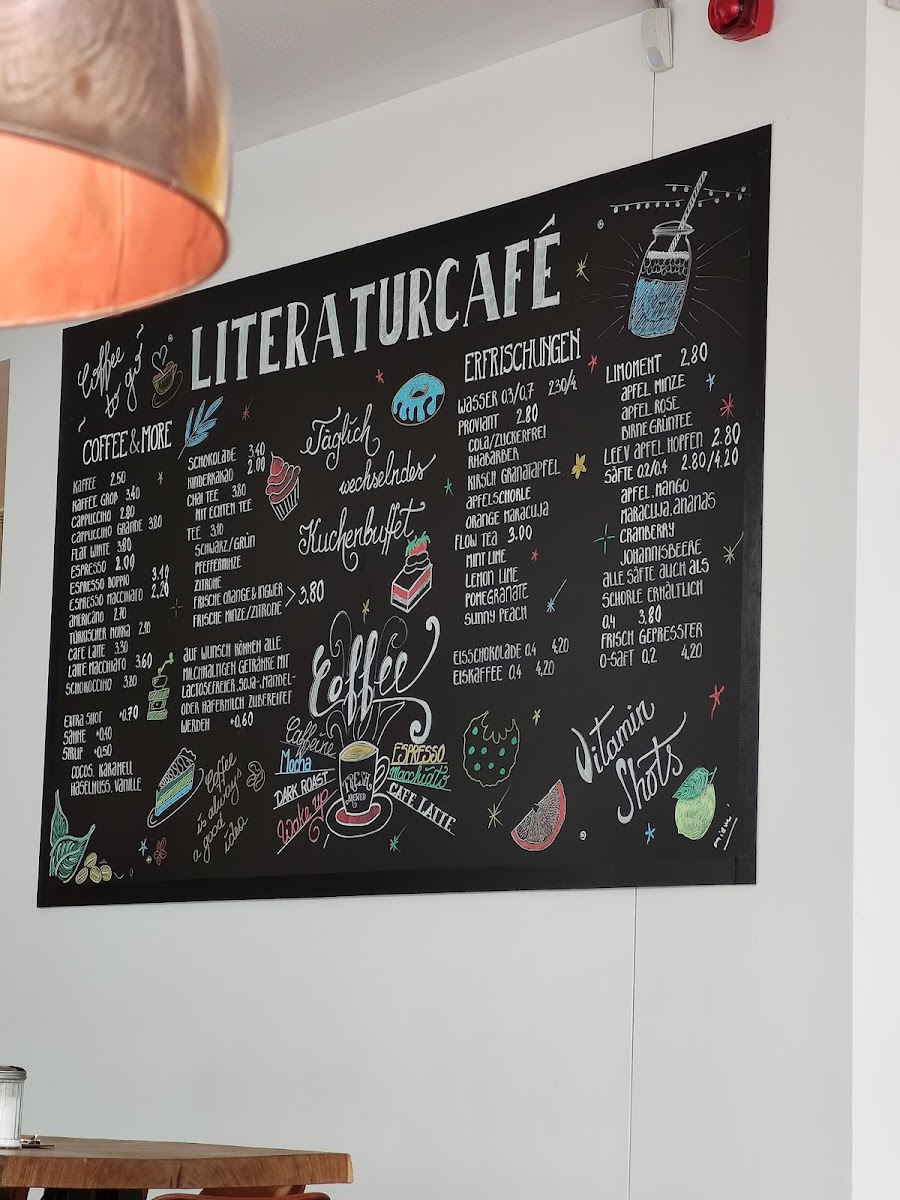 LITERATURCAFÉ
Coffee
to go
COFFEE & MORE
KAFFEE 2.50
KAFFEE GROß 3.40
CAPPUCCINO 2.80
CAPPUCCINO GRANDE 3.80
FLAT WHITE 3.80
ESPRESSO 2.00
ESPRESSO DOPPIO 3.10
ESPRESSO MACCHIATO 2,20
AMERICANO 2,70
TÜRKISCHER MOKKA 2.90
CAFE LATTE 3.30
LATTE MACCHIATO 3.60
SCHOKOCCINO 3.80
EXTRA SHOT +0.70
SAHNE +0.40
SIRUP +0.50
COCOS, KARAMELL
HASELNUSS, VANILLE
SCHOKOLADE 3.40
KINDERKAKAO 2.00
CHAI TEE 3.80
MIT ECHTEN TEE
TEE 3.10
SCHWARZ/GRÜN
PFEFFERMINZE
ZITRONE
FRISCHE ORANGE & INGWER
FRISCHE MINZE/ZITRONE > 3,80
AUF WUNSCH KÖNNEN ALLE
MILCHHALTIGEN GETRÄNKE MIT
LACTOSEFREIER, SOJA-, MANDEL-
ODER HAFERMILCH ZUBEREITET
WERDEN +0.60
Täglich
wechselndes
Kuchenbuffet
Coffee
Caffeine
Mocha
DARK ROAST
Wake up
FRESH
BREWED
ESPRESSO
Macchiato
CAFE LATTE
Coffee
is always
a good
idea
ERFRISCHUNGEN
WASSER 0.3/0,7 2.30/4.
PROVIANT 2.80
COLA/ZUCKERFREI
RHABARBER
KIRSCH GRANATAPFEL
APFELSCHORLE
ORANGE MARACUJA
FLOW TEA 3.00
MINT LIME
LEMON LIME
POMEGRANATE
SUNNY PEACH
EISSCHOKOLADE 0.4 4,20
EISKAFFEE 0.4 4,20
LIMOMENT 2,80
APFEL MINZE
APFEL ROSE
BIRNE GRÜNTEE
LEEV APFEL HOPFEN 2.80
SÄFTE 0.2/0.4 2.80/4.20
APFEL, MANGO
MARACUJA, ANANAS
CRANBERRY
JOHANNISBEERE
ALLE SÄFTE AUCH ALS
SCHORLE ERHÄLTLICH
0.4 3,80
FRISCH GEPRESSTER
O-SAFT 0.2 4,20
Vitamin
Shots